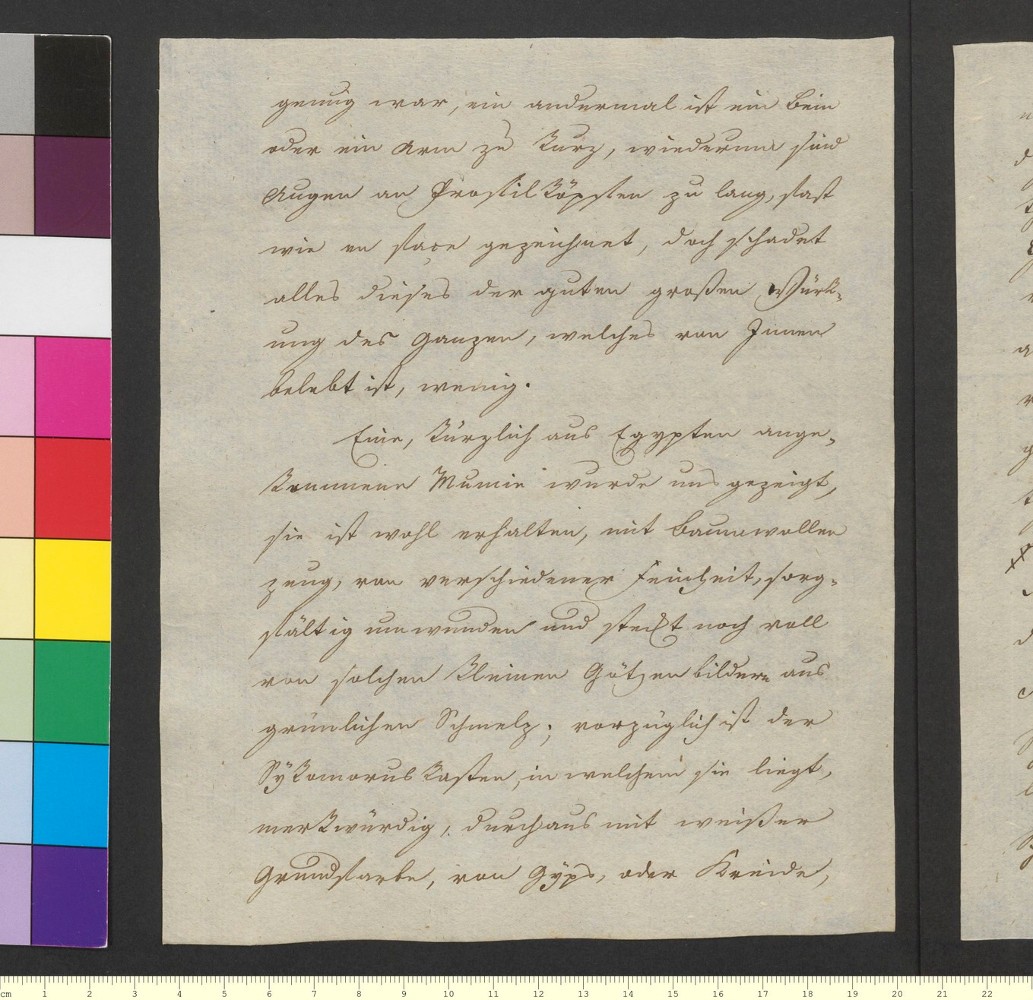 genug war, ein andermal ist ein Bein
oder ein Arm zu kurz, wiederum sind
Augen an Profilköpfen zu lang, fast
wie en face gezeichnet, doch schadet
alles dieses der guten großen Würk-
ung des Ganzen, welches von Innen
belebt ist, wenig.
Eine, kürzlich aus Egypten ange-
kommene Mumie wurde uns gezeigt,
sie ist wohl erhalten, mit Baumwollen
zeug, von verschiedener Feinheit, sorg-
fältig umwunden und steckt noch voll
von solchen kleinen Götzenbildern aus
grünlichen Schmelz; vorzüglich ist der
Sykomoruskasten, in welchem sie liegt,
merkwürdig, durchaus mit weißer
Grundfarbe, von Gyps, oder Kreide,
cm 1 2 3 4 5 6 7 8 9 10 11 12 13 14 15 16 17 18 19 20 21 22